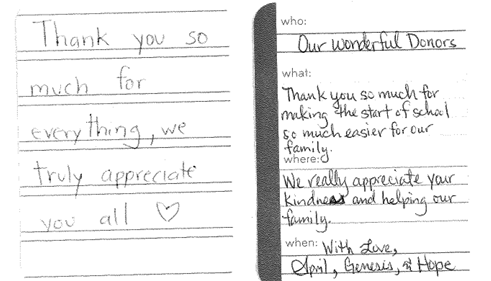 Thank you so
much for
everything, we
truly appreciate
you all ♡
who:
Our wonderful Donors
what:
Thank you so much for
making the start of school
so much easier for our
family.
where:
We really appreciate your
kindness and helping our
family.
when: With Love,
April, Genesis, & Hope